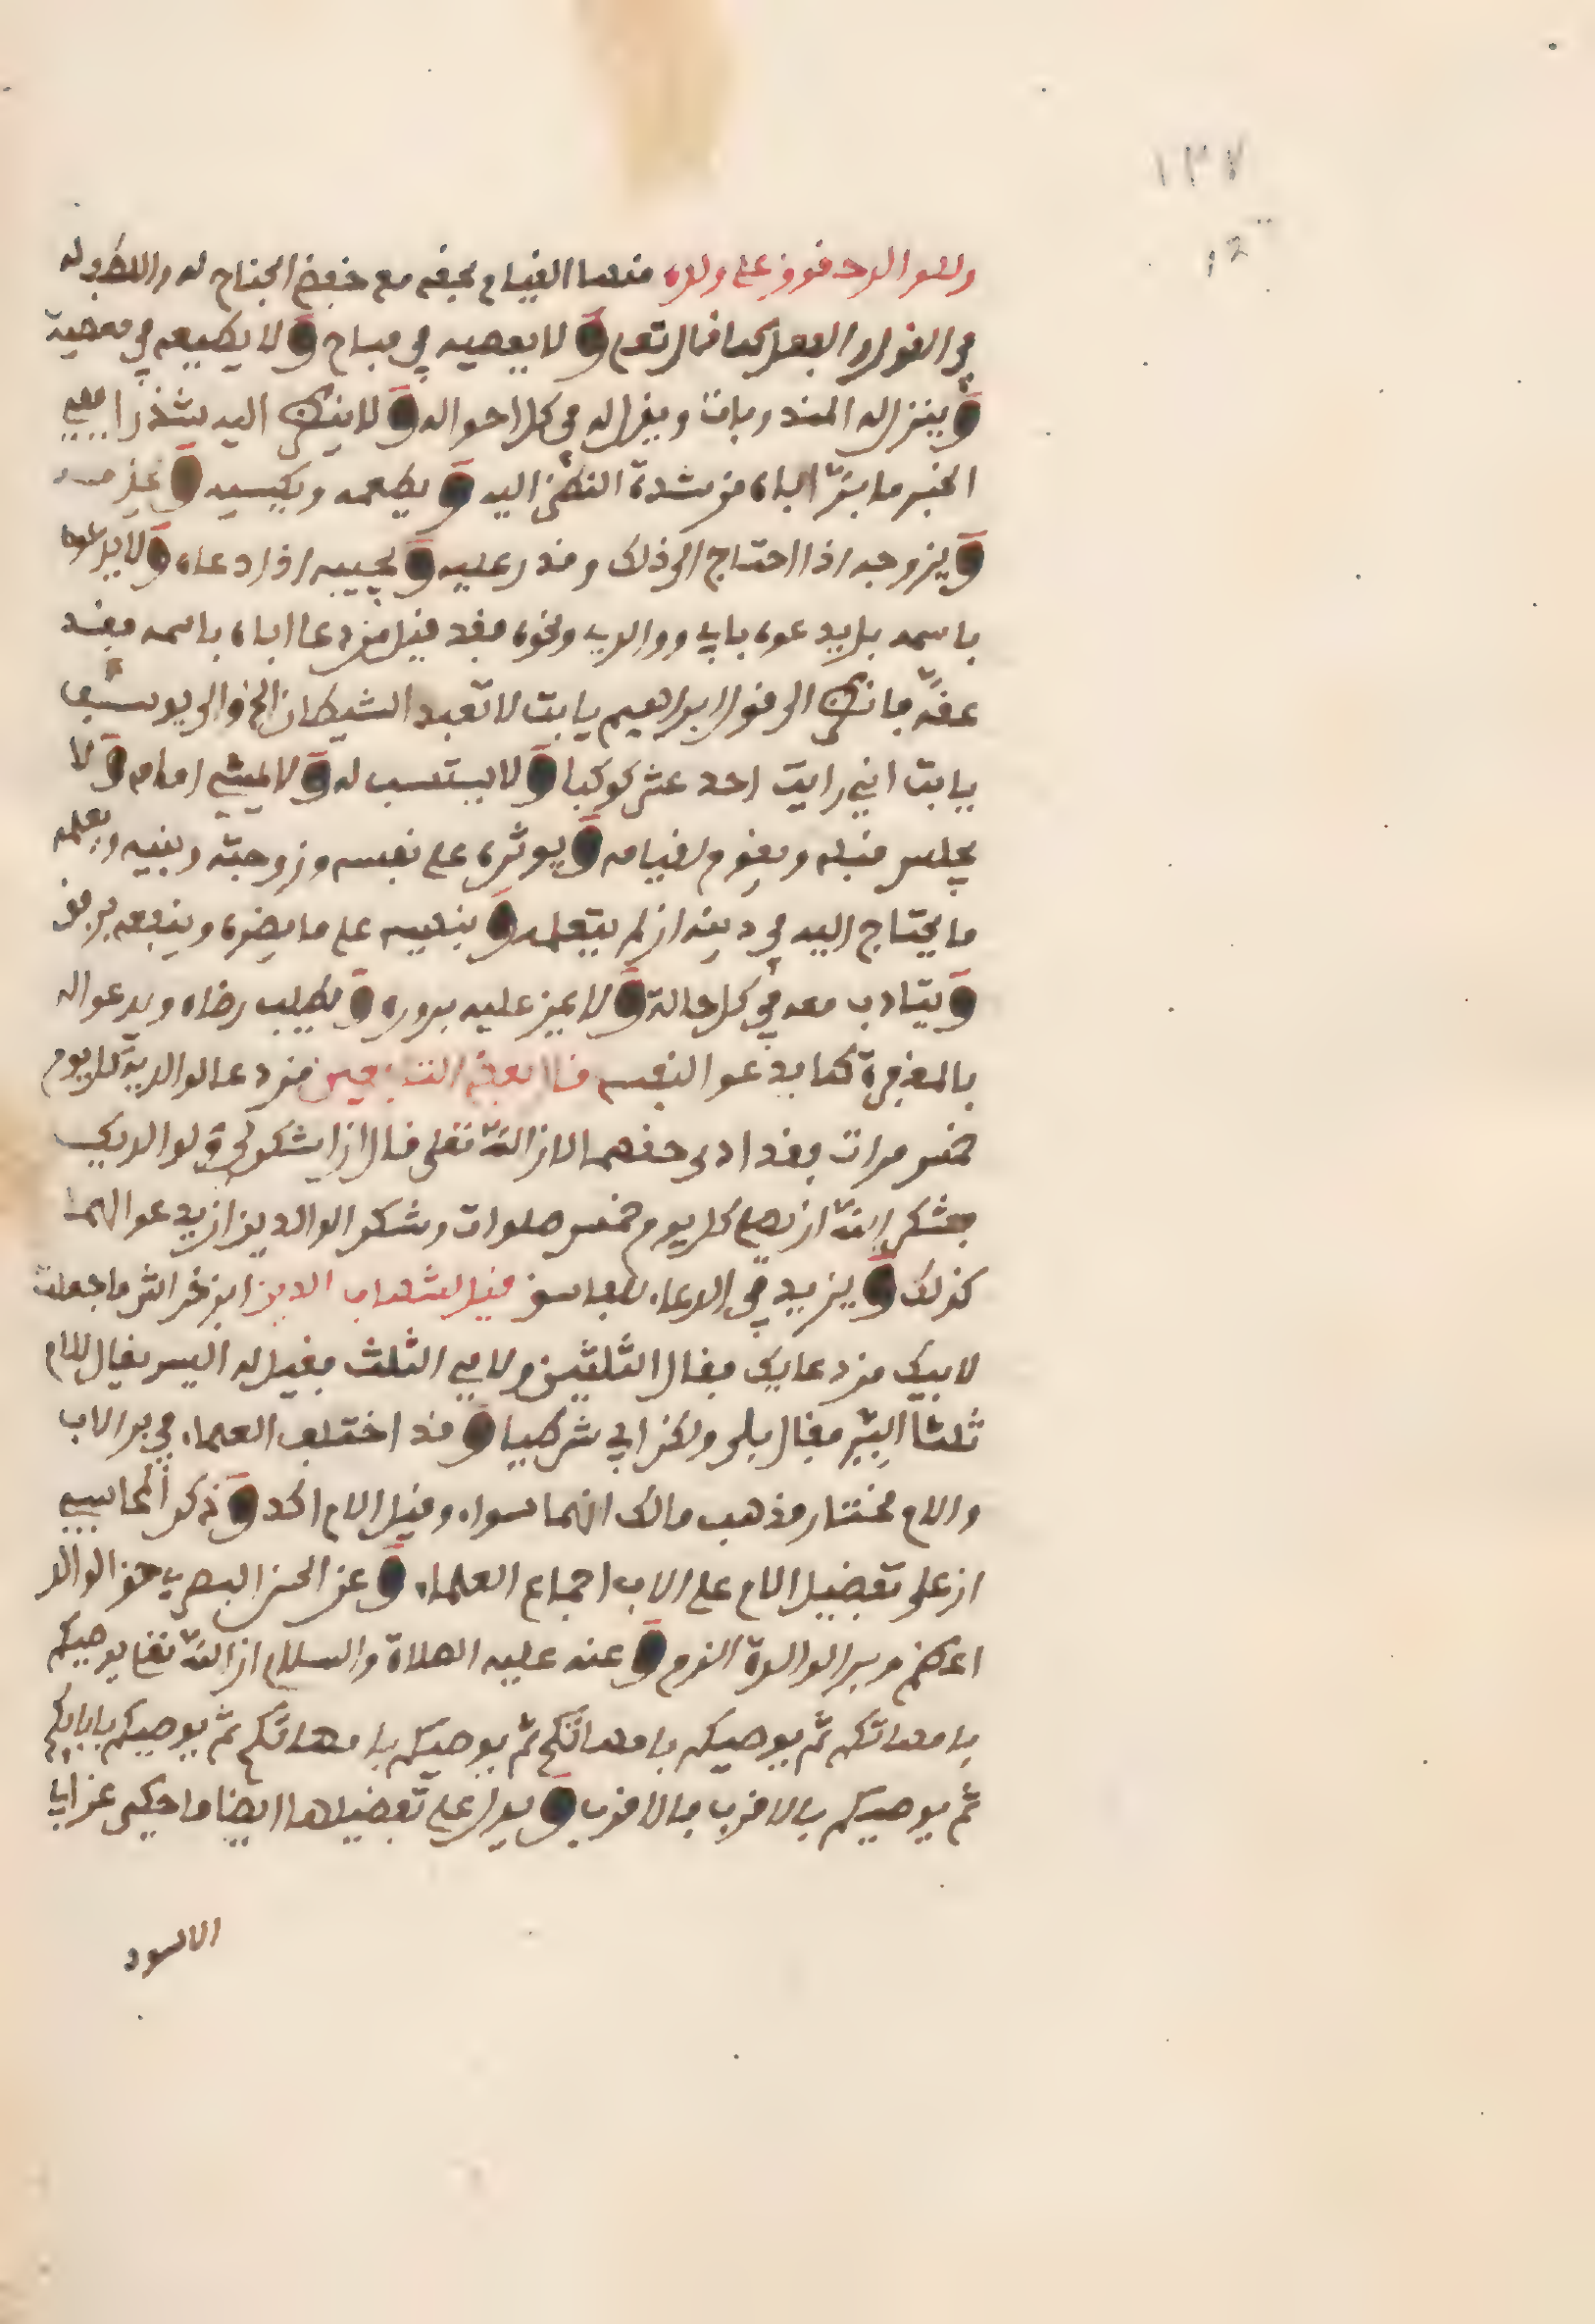 ١٣٧
وللوالد حقوق على ولده منها القيام بحقه مع خفض الجناح له واللطف له
في القول والفعل كما قال تعلى و لا يعصيه في مباح و لا يطيعه في معصية
و ينزله المندوبات ويفر له في كل احواله و لا ينظر اليه شذرا ففي
الخبر ما بر اباه من شدة النظر اليه و يطعمه ويكسيه و
و يزوجه اذا احتاج الى ذلك وقدر عليه و يجيبه اذا دعاه و لا يدعوه
باسمه بل يدعوه بابي ووالدي ونحوه فقد قيل من دعا اباه باسمه فقد
عقه فانظر الى قول ابراهيم يا ابت لا تعبد الشيطان الخ والى يوسف
يابت اني رايت احد عشر كوكبا و لا يستسب له و لا يمشي امامه و لا
يجلس قبله ويقوم لقيامه و يوثره على نفسه وزوجته وبنيه ويعلمه
ما يحتاج اليه في دينه ان لم يتعلمه و ينبهه على ما يضره وينفعه برفق
و يتادب معه في كل حالة و لا يمن عليه ببروره و يطلب رضاه ويدعو له
بالمغفرة كما يدعو لنفسه قال بعض التابعين من دعا لوالديه كل يوم
خمس مرات فقد ادى حقهما لان الله تعلى قال ان اشكر لي ولوالديك
فشكر الله ان يصلي كل يوم خمس صلوات وشكر الوالدين ان يدعو لهما
كذلك و يزيد في الدعاء قيل لشهاب الدين ابن خر الثر ما جعلت
لابيك من دعايك فقال الثلثين ولامي الثلث فقيل له اليس يقال للام
ثلثا البر فقال بلى ولكن ابي شرطيا و قد اختلف العلماء في بر الاب
والام فختار مذهب مالك انهما سواء وقيل الام اكد و ذكر المحاسبي
ان على تفضيل الام على الاب اجماع العلماء و عن الحسن البصري حق الوالد
اعظم وبر الوالدة الزم و عنه عليه الصلاة والسلام ان الله تعلى يوصيكم
بامهاتكم ثم يوصيكم بامهاتكم ثم يوصيكم بامهاتكم ثم يوصيكم بابايكم
ثم يوصيكم بالاقرب فالاقرب و يدل على تفضيلها ايضا ما حكي عن ابا
الاسود